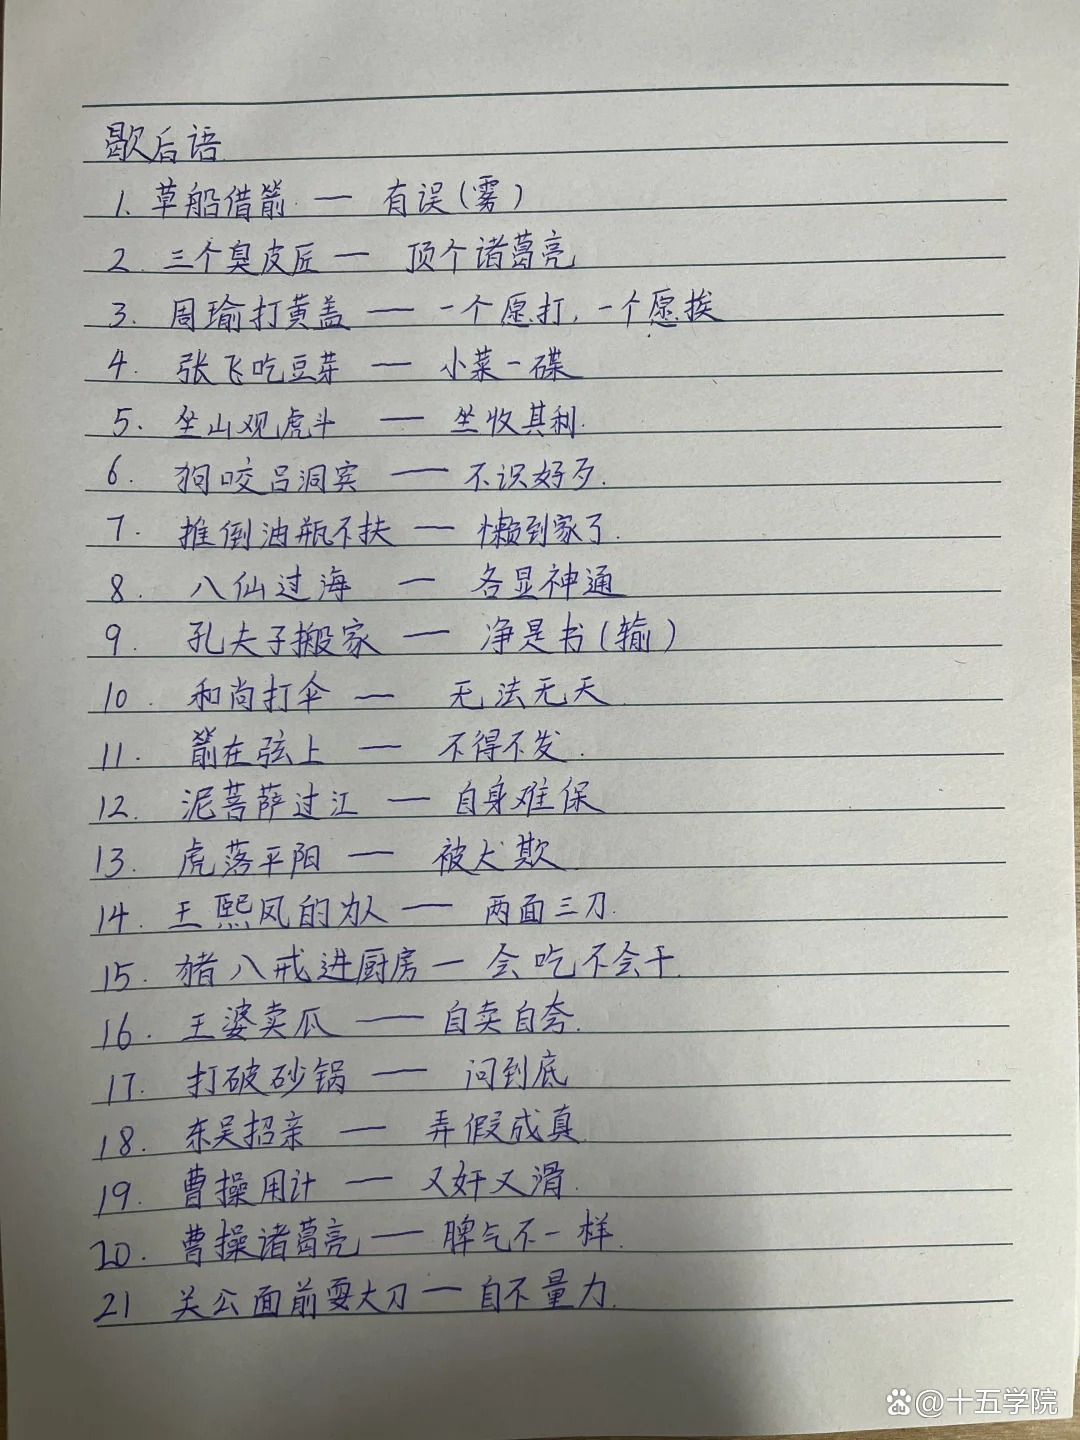 歇后语
1. 草船借箭 — 有误(雾)
2. 三个臭皮匠 — 顶个诸葛亮
3. 周瑜打黄盖 — 一个愿打,一个愿挨
4. 张飞吃豆芽 — 小菜一碟
5. 坐山观虎斗 — 坐收其利.
6. 狗咬吕洞宾 — 不识好歹.
7. 推倒油瓶不扶 — 懒到家了.
8. 八仙过海 — 各显神通
9. 孔夫子搬家 — 净是书(输)
10. 和尚打伞 — 无法无天
11. 箭在弦上 — 不得不发.
12. 泥菩萨过江 — 自身难保
13. 虎落平阳 — 被犬欺
14. 王熙凤的为人 — 两面三刀.
15. 猪八戒进厨房 — 会吃不会干.
16. 王婆卖瓜 — 自卖自夸.
17. 打破砂锅 — 问到底
18. 东吴招亲 — 弄假成真
19. 曹操用计 — 又奸又滑.
20. 曹操诸葛亮 — 脾气不一样.
21 关公面前耍大刀 — 自不量力.
@十五学院